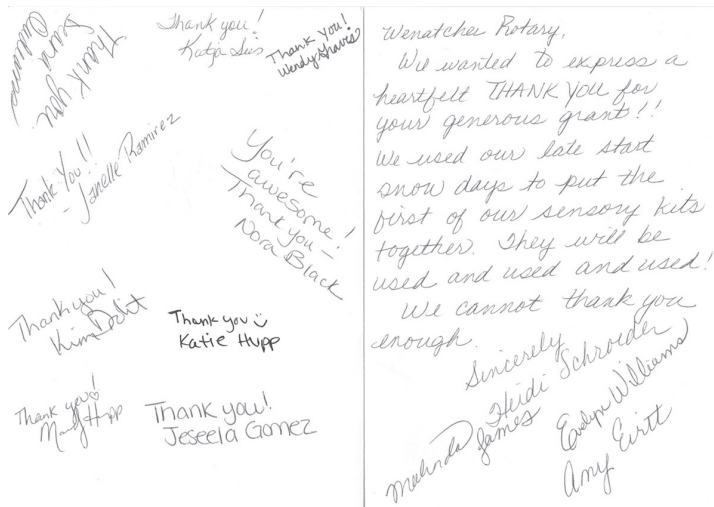 Thank you
Thank you!
Katja
Thank You!
Wendy
Thank You!!
- Janelle Ramirez
You're
awesome!
Thank you -
Nora Black
Thank you!
Kim
Thank you
Katie Hupp
Thank you!
Hupp
Thank you!
Jeseela Gomez
Wenatchee Rotary,
We wanted to express a
heartfelt THANK YOU for
your generous grant!!
We used our late start
snow days to put the
first of our sensory kits
together. They will be
used and used and used!
We cannot thank you
enough.
Sincerely
Heidi Schroider
Melinda James
Evelyn Williams
Amy